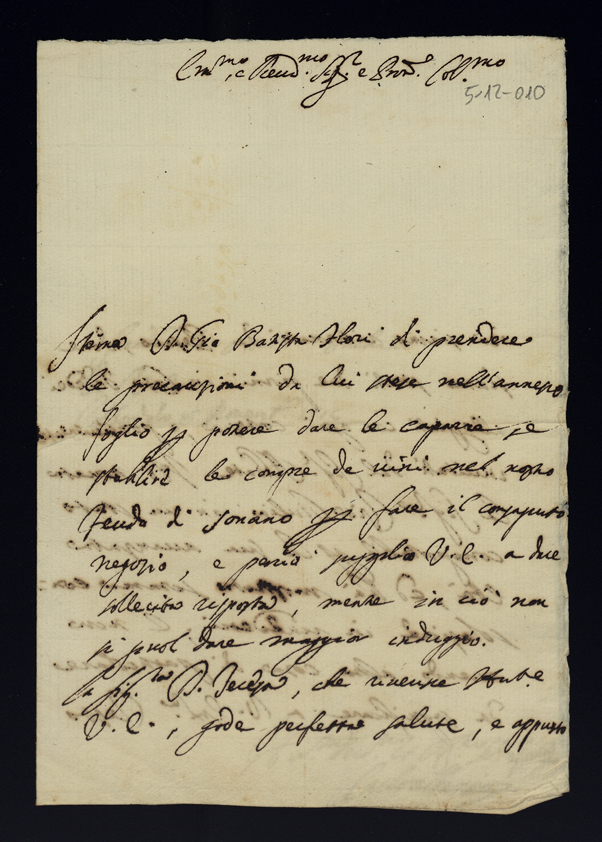 Em.mo, e Rever.mo Sig.r e Pron.e Col.mo
5-12-010
Stima D. Gio Batista Flori di prendere
le precauzioni da lui stese nell'annesso
foglio per potere dare le caparre, e
stabilire le compre de vini nel nostro
feudo di Soriano per fare il
negozio, e perciò supplico V. E. a dare
sollecita risposta, mentre in ciò non
si puol dare maggior induggio.
La Sig.ra D. Teresa, che riverisce
V. E., gode perfetta salute, e appunto